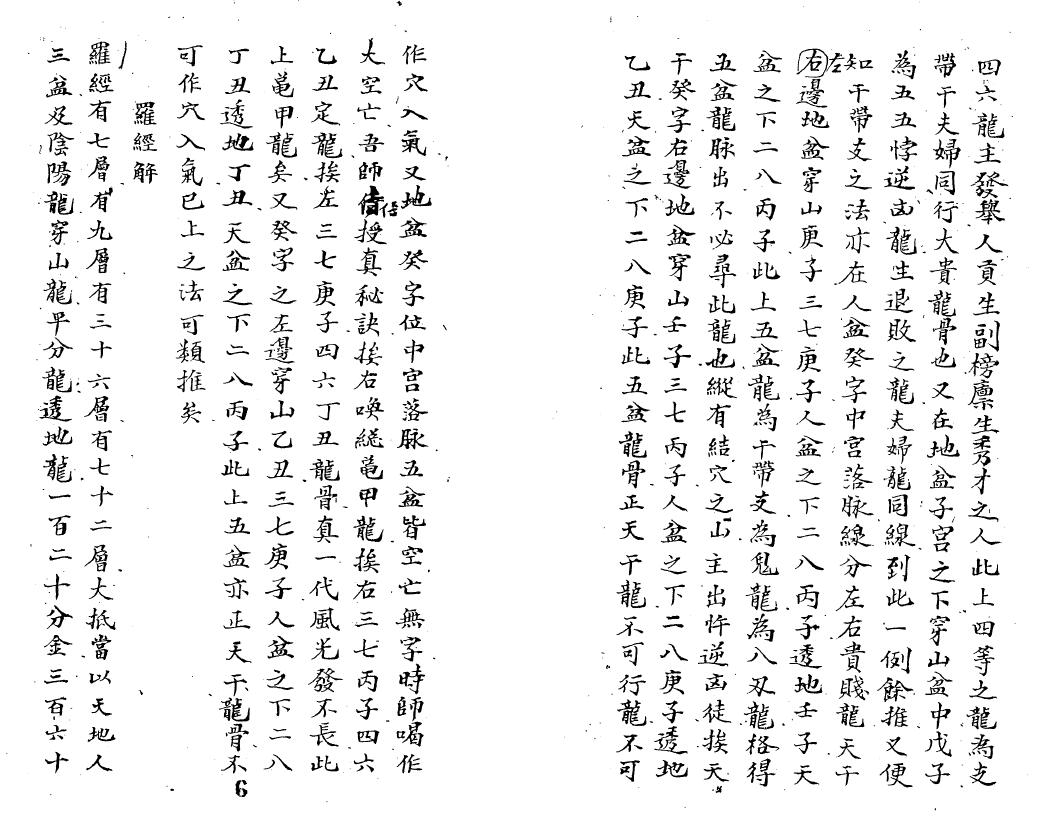 四六龍主發舉人貢生副榜廪生秀才之人此上四等之龍為支
帶干夫婦同行大貴龍骨也又在地盆子宮之下穿山盆中戊子
為五五悖逆凶龍生退敗之龍夫婦龍同線到此一例餘推又便
知干帶支之法亦在人盆癸字中宮落脉線分左右貴賤龍天干
左
右邊地盆穿山庚子三七庚子人盆之下二八丙子透地壬子天
盆之下二八丙子此上五盆龍為干帶支為鬼龍為八刄龍格得
五盆龍脉出不必尋此龍也縱有結穴之山主出忤逆凶徒挨天
干癸字右邊地盆穿山壬子三七丙子人盆之下二八庚子透地
乙丑天盆之下二八庚子此五盆龍骨正天干龍不可行龍不可
作穴入氣又地盆癸字位中宮落脉五盆皆空亡無字時師喝作
大空亡吾師授真秘訣挨右喚縂黾甲龍挨右三七丙子四六
乙丑定龍挨左三七庚子四六丁丑龍骨真一代風光發不長此
上黾甲龍矣又癸字之左邊穿山乙丑三七庚子人盆之下二八
丁丑透地丁丑天盆之下二八丙子此上五盆亦正天干龍骨不
可作穴入氣已上之法可類推矣
羅經解
羅經有七層有九層有三十六層有七十二層大抵當以天地人
三盆及陰陽龍穿山龍平分龍透地龍一百二十分金三百六十
6